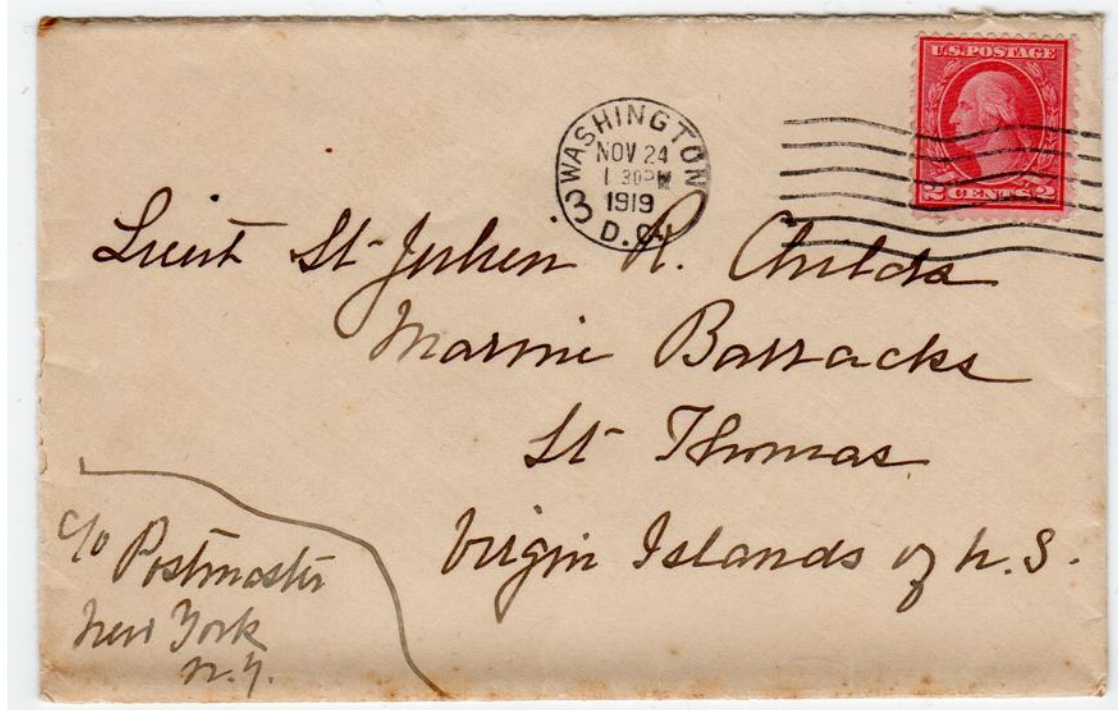 U.S. POSTAGE
2 CENTS 2
WASHINGTON
NOV 24
1 30 PM
1919
3 D.C.
Lieut St Julien R. Childs
Marine Barracks
St Thomas
Virgin Islands of U.S.
c/o Postmaster
New York
N.Y.